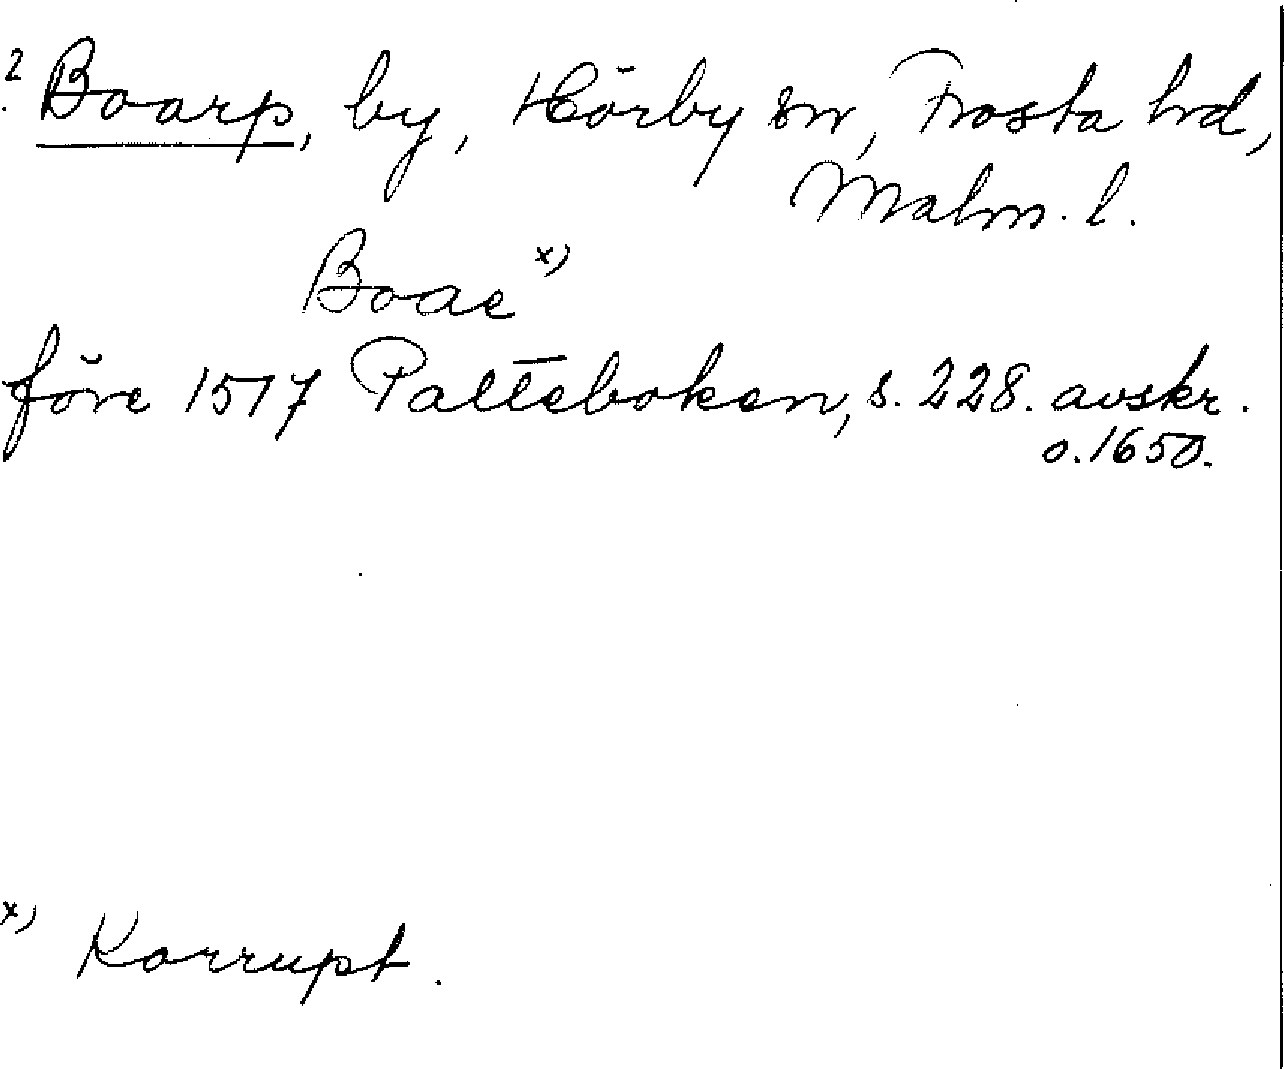 ? Boarp, by, Hörby sn, Frosta hrd,
Malm. l.
Boae x)
före 1517 Palteboken, s. 228. avskr.
o. 1650.
x) Korrupt.